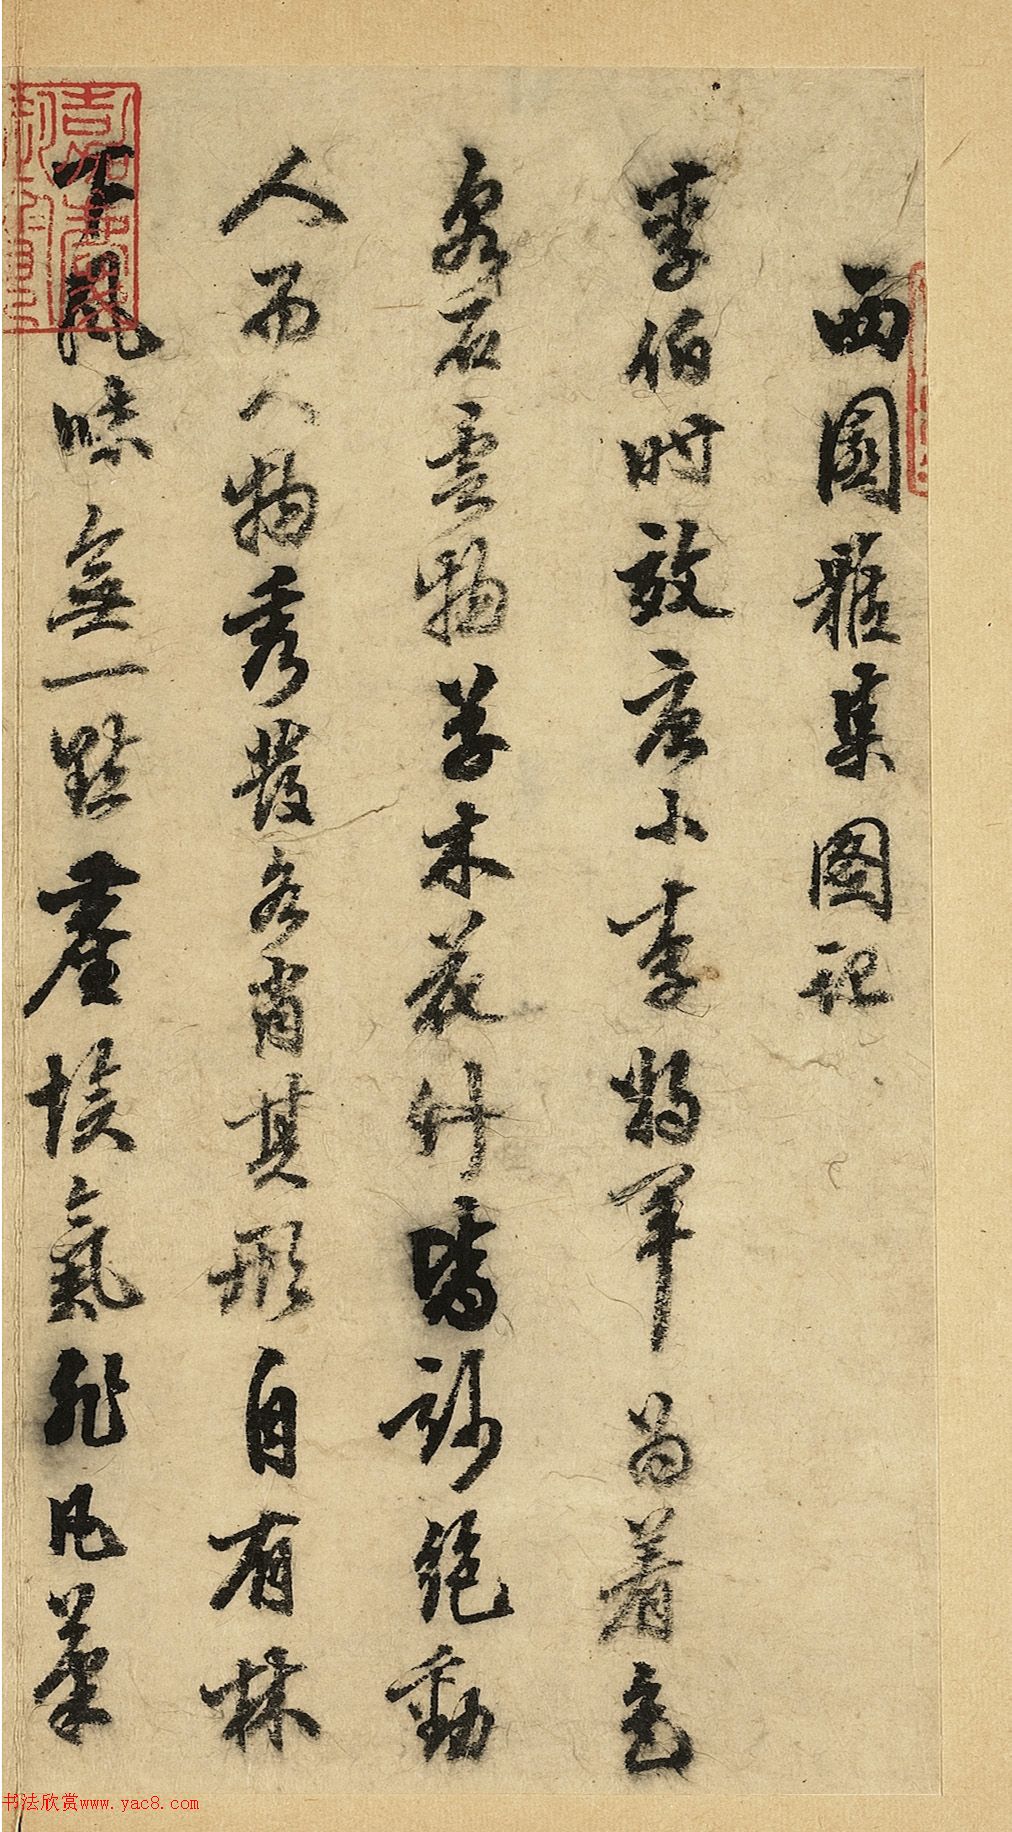 西園雅集圖記
李伯時效唐小李將軍為着色
泉石雲物草木花竹皆妙絕動
人而人物秀發各肖其形自有林
下風味無一點塵埃氣非凡筆
书法欣赏www.yac8.com